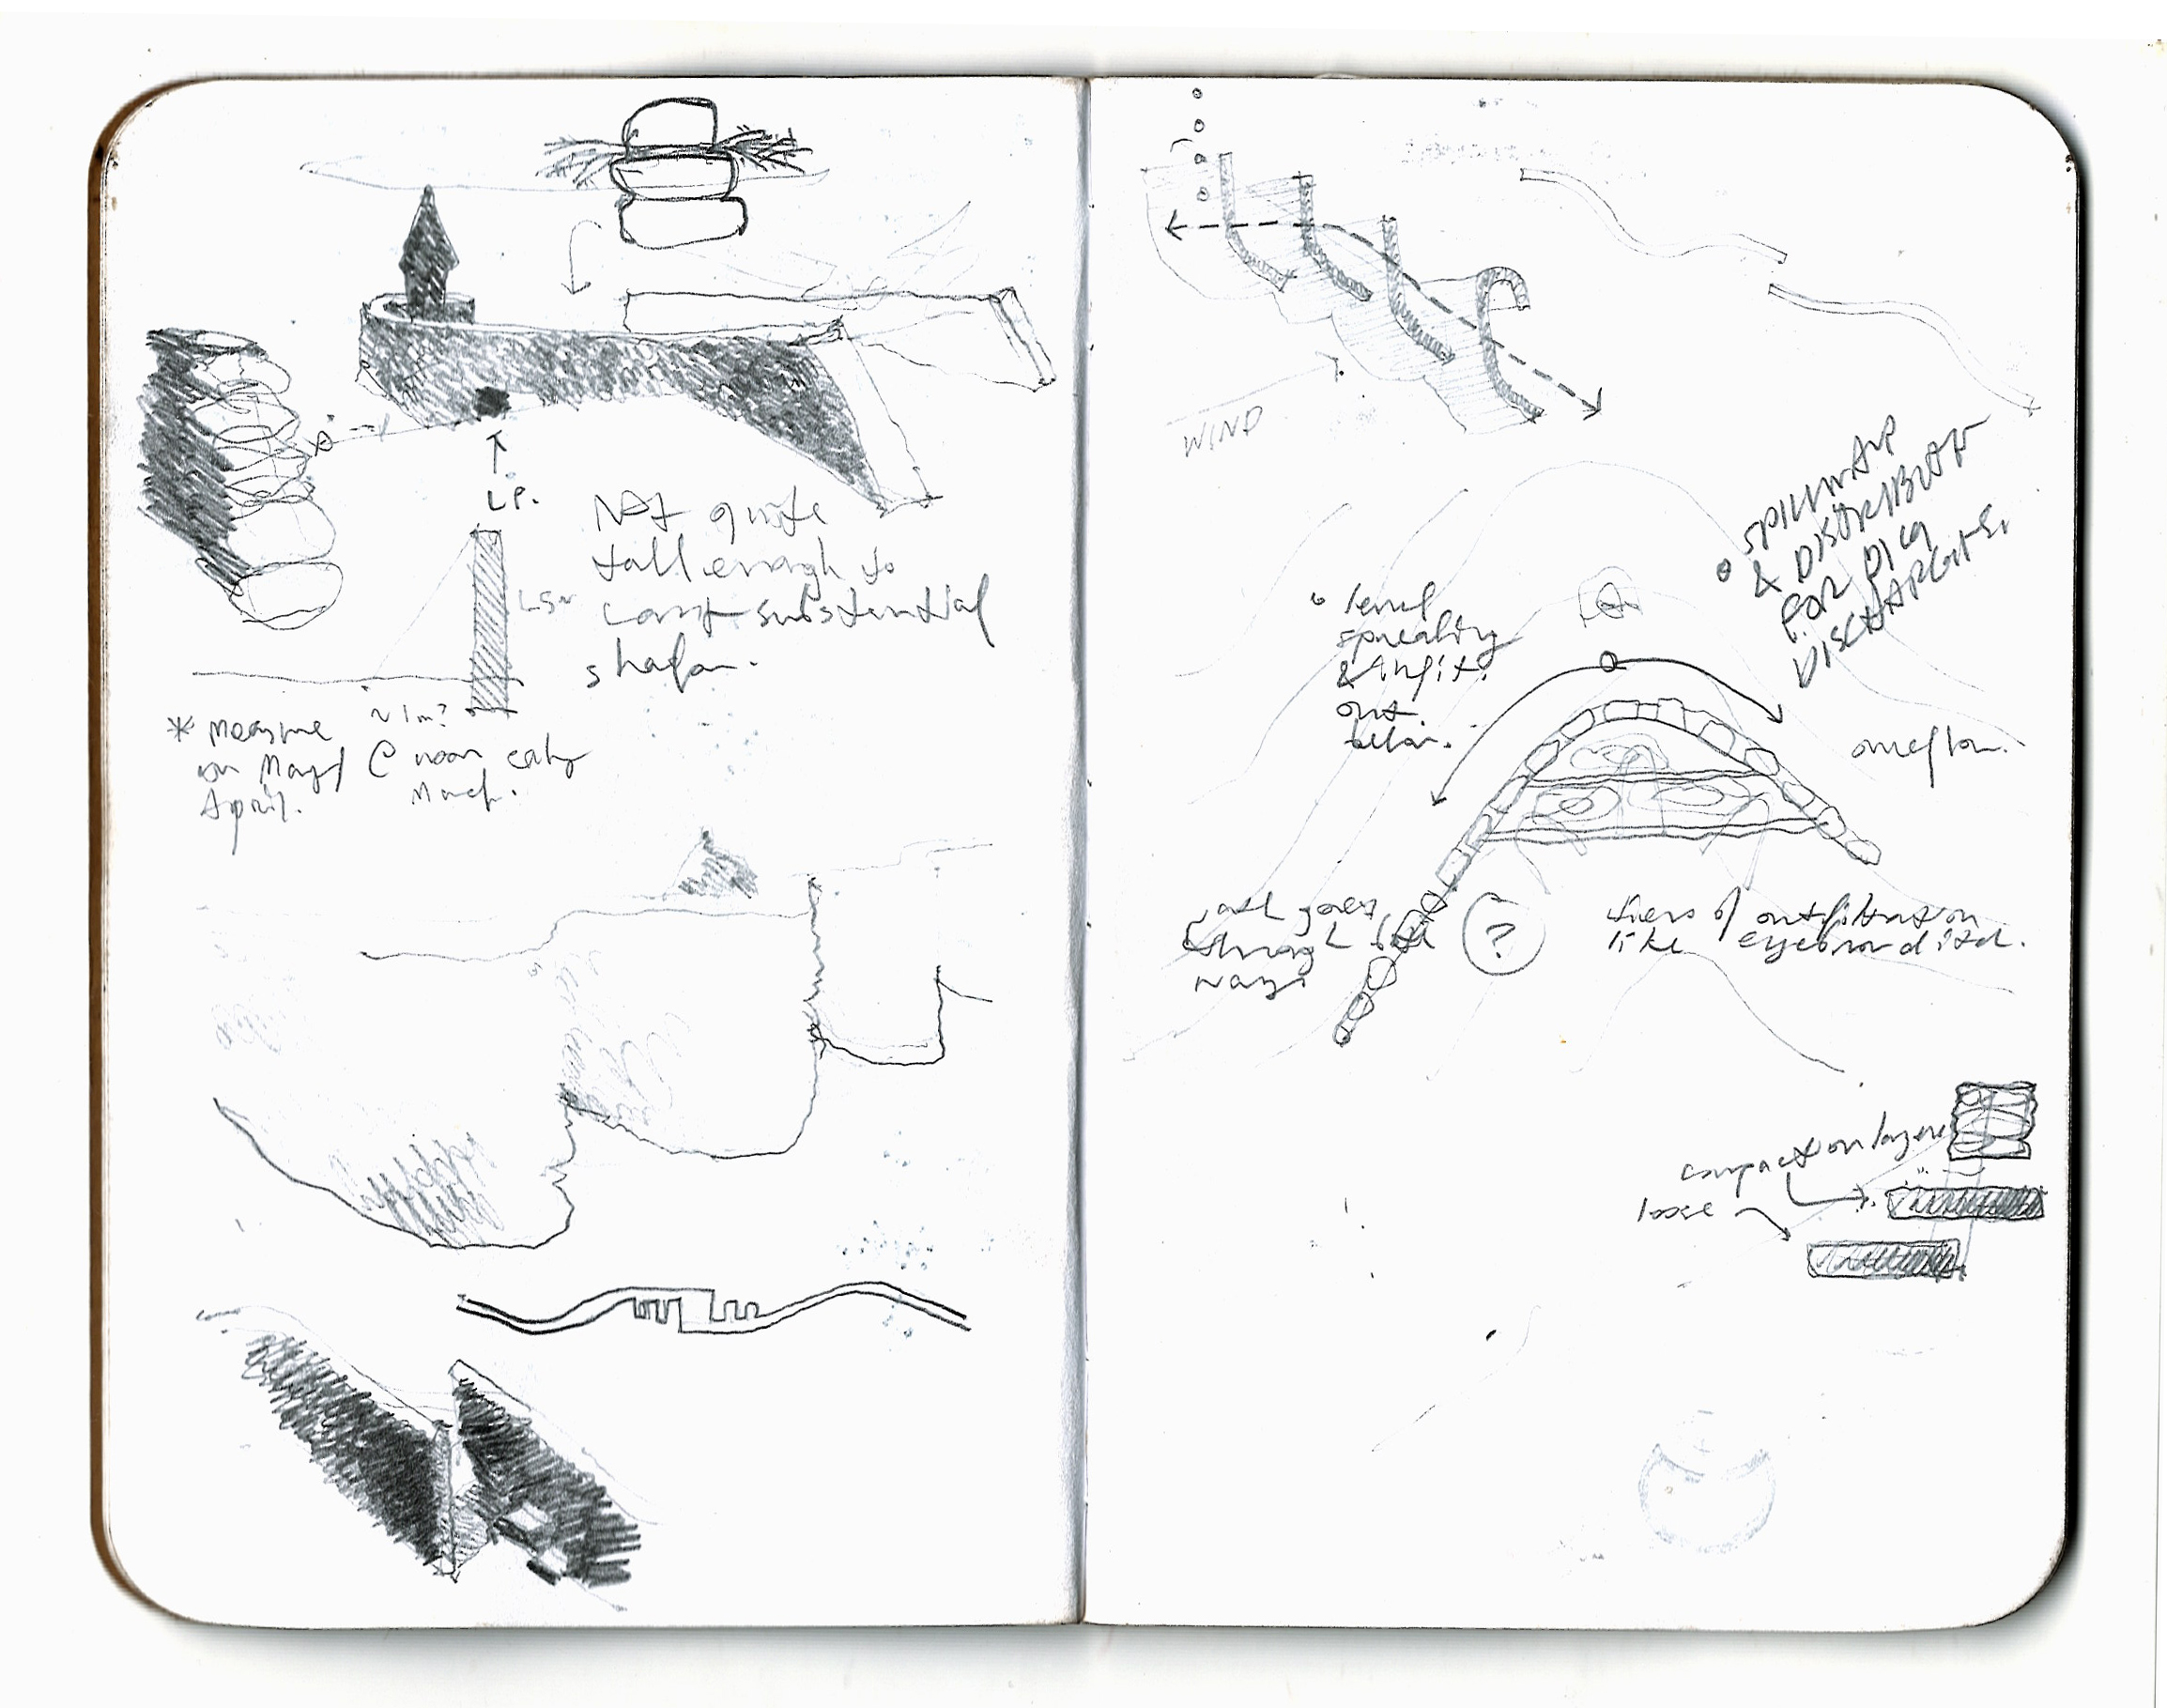 L.P.
Not quite
tall enough to
cast substantial
shadow.
1.5m
~1m?
* Measure
on May/
April.
@ noon early
March.
WIND
• SPILLWAY
& DISTRIBUTION
FOR BIG
DISCHARGES.
• level
spreading
& infilt.
out
below.
overflow.
?
tiers of outfiltration
like eyebrow ditch.
path goes
through
ways
compaction layer
loose